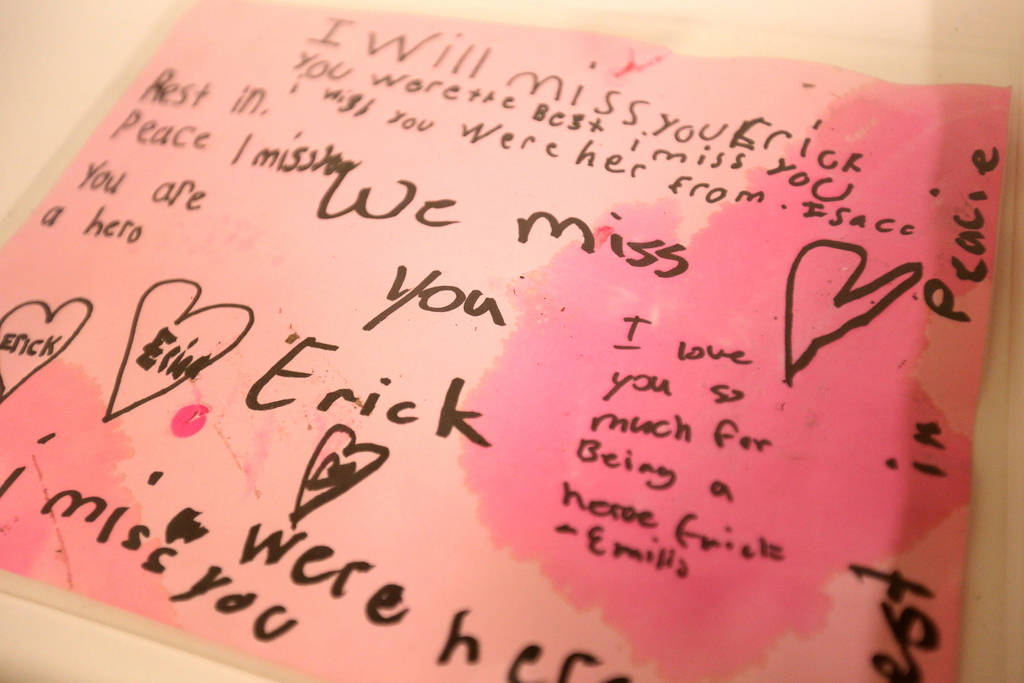 I Will miss you Erick
You were the Best i miss you
i wigs you were her from. Isacc
Rest in.
Peace I miss you
You are
a hero
We miss
you
Erick
Erick
I love
you so
much for
Being a
heroe Erick
- Emilis
i miss you
were here
est in Peacie